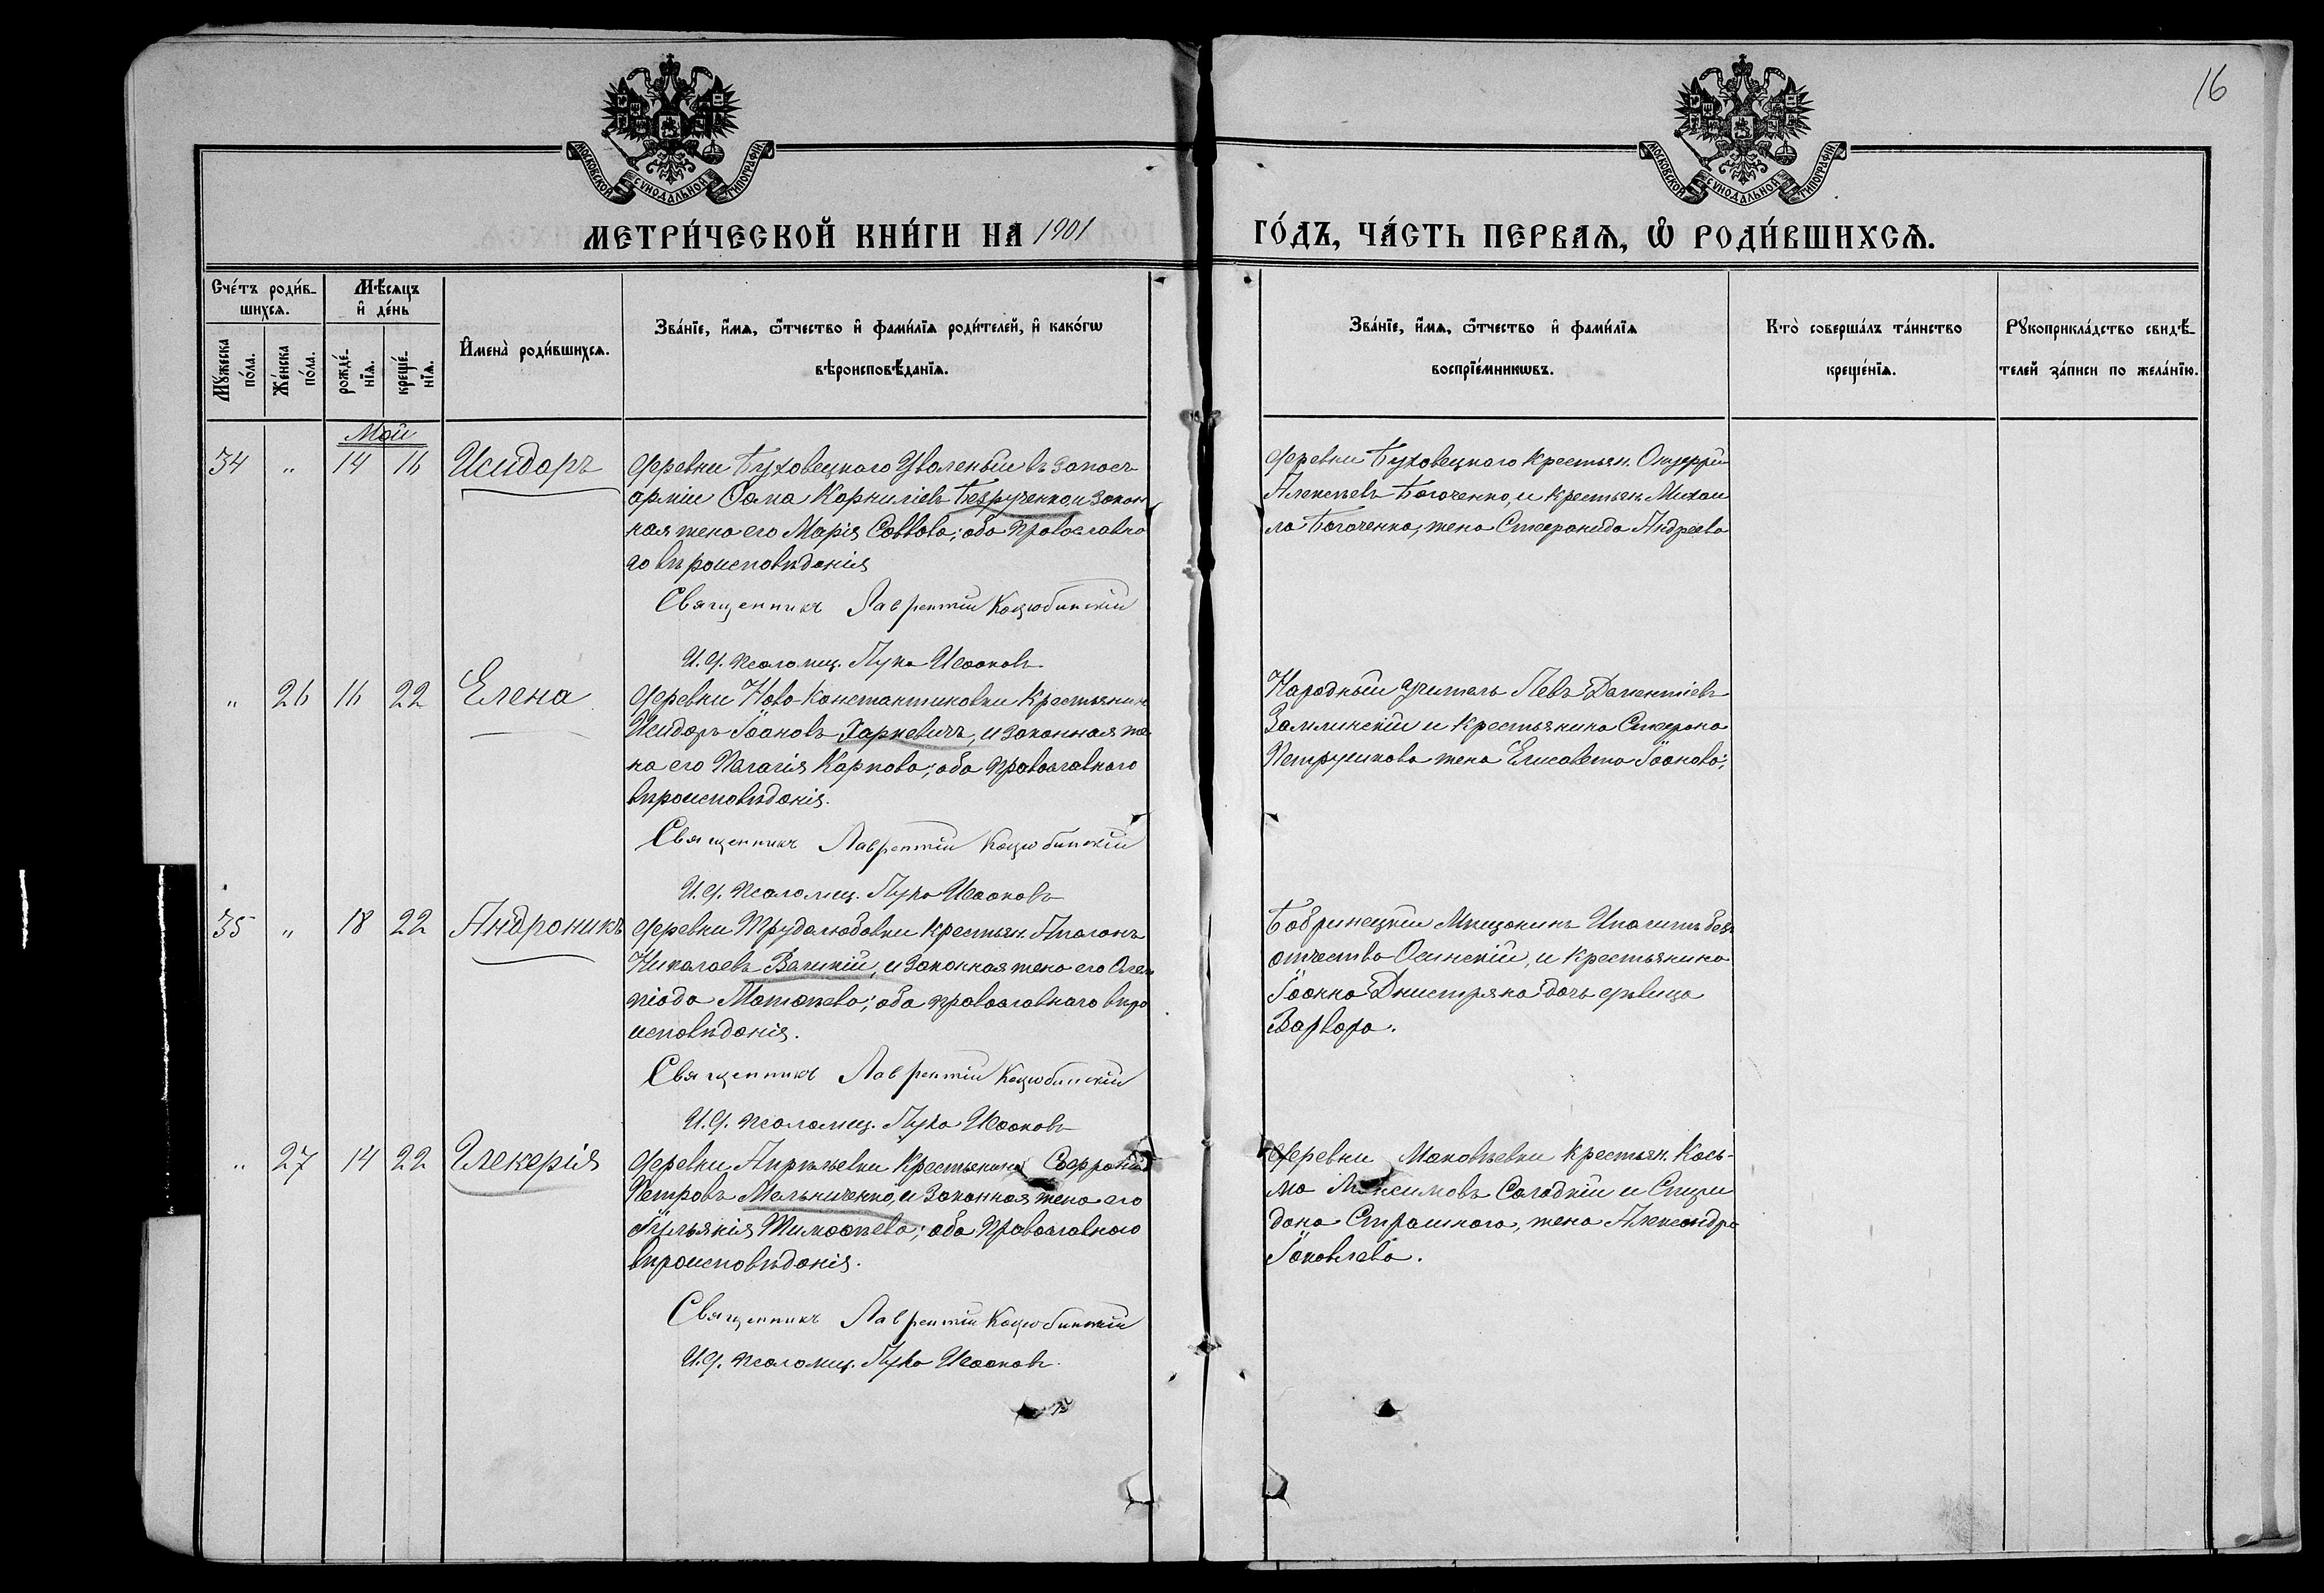 16
МОСКОВСКОЙ СѴНОДАЛЬНОЙ ТИПОГРАФІИ
МОСКОВСКОЙ СѴНОДАЛЬНОЙ ТИПОГРАФІИ
МЕТРИ́ЧЕСКОЙ КНИ́ГИ НА 1901
ГО́ДЪ, ЧА́СТЬ ПЕРВАѦ, Ѡ РОДИ́ВШИХСѦ.
Счéтъ роди́в-
шихсѧ.
Мꙋ́жеска
по́ла.
Же́нска
по́ла.
Мѣ́сѧцъ
и҆ де́нь
рожде́-
нїѧ.
креще́-
нїѧ.
И҆мена̀ роди́вшихсѧ.
Зва́нїе, и҆́мѧ, ѻ҆́тчество и҆ фами́лїѧ роди́телей, и҆ како́гѡ
вѣроисповѣ́данїѧ.
Зва́нїе, и҆́мѧ, ѻ҆́тчество и҆ фами́лїѧ
воспрїе́мникѡвъ.
Кто̀ соверша́лъ та́инство
креще́нїѧ.
Рꙋкоприкла́дство свидѣ́-
телей за́писи по жела́нїю.
Май
34 " 14 16 Исидоръ
деревни Буховецкого Уволенный въ запасъ
арміи Сама Корниліевъ Безрученко, и закон
ная жена его Марія Саввова; оба православна
го вѣроисповѣданія
Священникъ Лаврентій Коцюбинскій
И. д. псаломщ. Лука Исааковъ
деревни Буховецкого крестьян. Онуфрій
Алексѣевъ Богаченко, и крестьян. Михаи
ла Богаченко, жена Стефанида Андреева
" 26 16 22 Елена
деревни Ново-Константиновки крестьянин
Исидоръ Іоановъ Харкевичъ, и законная же
на его Пелагія Карпова; оба православнаго
вѣроисповѣданія.
Священникъ Лаврентій Коцюбинскій
И. д. псаломщ. Лука Исааковъ
Народный учитель Левъ Дометіевъ
и крестьянина Стефана
Петрушкова жена Елисавета Іоанова;
35 " 18 22 Андроникъ
деревни Трудолюбовки крестьян. Агаѳонъ
Николаевъ Великій, и законная жена его Олим
піада Матѳеева; оба православнаго вѣро
исповѣданія.
Священникъ Лаврентій Коцюбинскій
И. д. псаломщ. Лука Исааковъ
Бобринецкій мѣщанинъ Ипалитъ безъ
отчества Осинскій, и крестьянина
Іоанна Днистряна дочь дѣвица
Варвара.
" 27 14 22 Гликерія
деревни Апрѣлевки крестьянинъ Софроній
Петровъ Мельниченко, и законная жена его
Іульянія Тимоѳеева; оба православнаго
вѣроисповѣданія.
Священникъ Лаврентій Коцюбинскій
И. д. псаломщ. Лука Исааковъ
деревни Маковѣевки крестьян. Кось-
ма Максимовъ Солодкій и Спири
дона Страшного, жена Александра
Іаковлева.